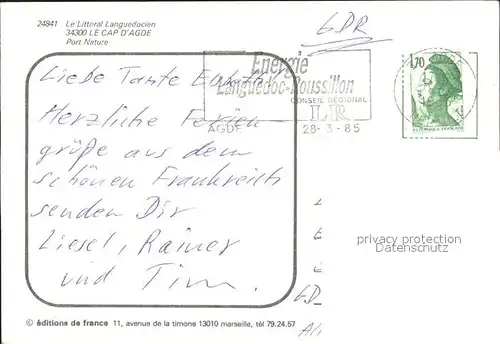 24841 Le Littoral Languedocien
34300 LE CAP D'AGDE
Port Nature
GDR
Energie
Languedoc-Roussillon
CONSEIL REGIONAL
L.R.
AGDE 28-3-85
1,70
Liebe Tante
Herzliche Ferien
grüße aus dem
schönen Frankreich
senden Dir
Liesel, Rainer
und Tim.
privacy protection
Datenschutz
© éditions de france 11, avenue de la timone 13010 marseille, tél 79.24.57